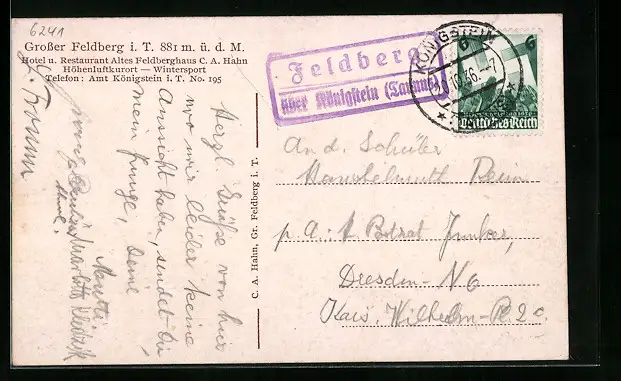 6241
Großer Feldberg i. T. 881 m. ü. d. M.
Hotel u. Restaurant Altes Feldberghaus C. A. Hahn
Höhenluftkurort — Wintersport
Telefon: Amt Königstein i. T. No. 195
Feldberg
über Königstein (Taunus)
KÖNIGSTEIN
.10.36.-7
6
6
Deutsches Reich
Herzl. Grüße von hier
wo wir leider keine
Ansicht haben, sendet Dir
mein Junge, Deine
Mutti
C. A. Hahn, Gr. Feldberg i. T.
An d. Schüler
Hanshelmuth
p. A.: Junker,
Dresden-N6
Kais. Wilhelm-Pl 2c.